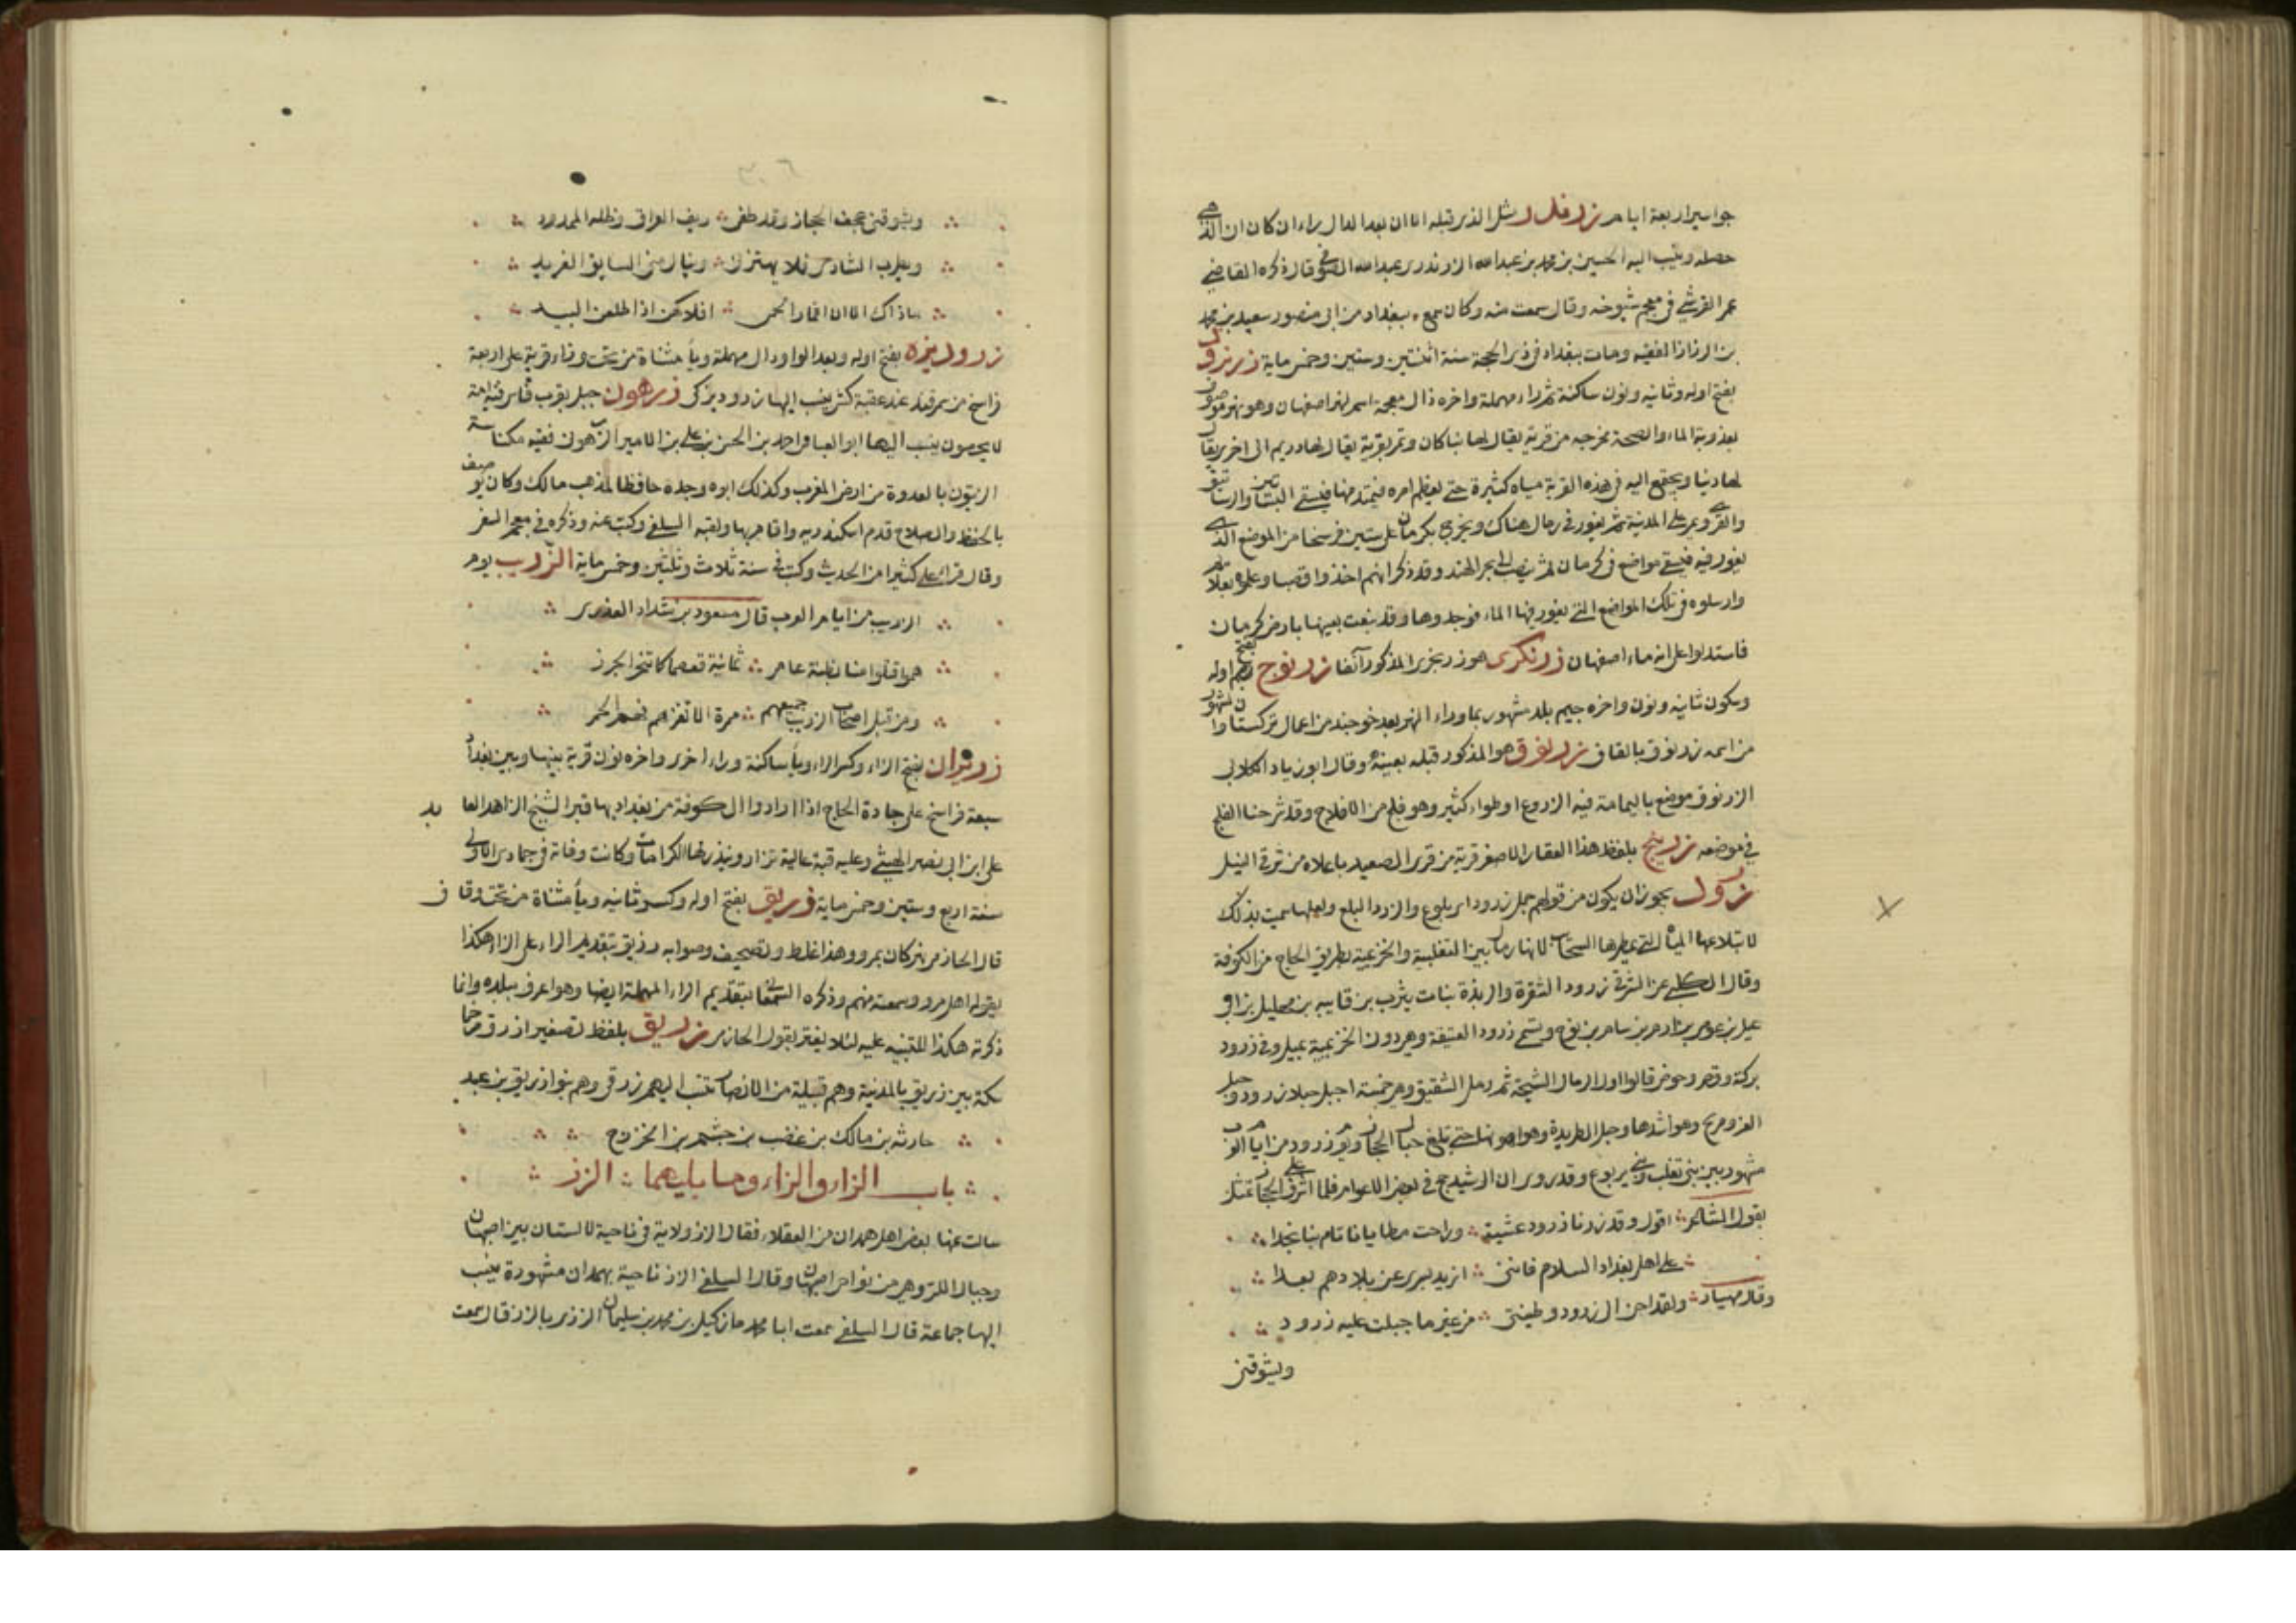 جواسير اربعة ايام زرفند مثل الذي قبله الا ان بعد الدال راء ان كان ان الذي
حصله وينسب اليه الحسين بن محمد بن عبدالله الزرندري عبدالله الصوفي قال ذكره القاضي
عمر القرشي في معجم شيوخه وقال سمعت منه وكان سمع ببغداد من ابي منصور سعيد بن محمد
بن الرزاز الفقيه ومات ببغداد في ذي الحجة سنة اثنتين وستين وخمس ماية زرنرود
بفتح اوله وثانيه ونون ساكنة ثم راء مهملة واخره ذال معجمة اسم لنهر اصفهان وهو نهر موصوف
بعذوبة الماء والصحة مخرجه من قرية يقال لها بناكان وتمر بقرية يقال لها دريم الى اخرى يقال
لها دنبا ويجتمع اليه في هذه القرية مياه كثيرة حتى يعظم امره فيمتد منها فيسقي البساتين والرساتيق
والقرى ويمر على المدينة ثم يغور في رمال هناك ويخرج بكرمان على ستين فرسخا من الموضع الذي
يغور فيه فيسقي مواضع في كرمان ثم ينصب الى بحر الهند وقد ذكر انهم اخذوا قصبا وعلموه بعلائم
وارسلوه في تلك المواضع التي يغور فيها الماء فوجدوها وقد نبعت بعينها بارض كرمان
فاستدلوا على انه ماء اصفهان زرنكرى هو زربخرى المذكور آنفا زرنوج بفتح وضم اوله
وسكون ثانيه ونون واخره جيم بلد مشهور بما وراء النهر بعد خوجند من اعمال تركستان والمشهور
من اسمه زرنوق بالقاف زرنوق هو المذكور قبله بعينه وقال ابو زياد الكلابي
الزرنوق موضع باليمامة فيه الزروع واطواء كثير وهو فلج من الافلاج وقد شرحنا الفلج
في موضعه زرنيخ بلفظ هذا العقار الاصفر قرية من قرى الصعيد باعلاه من شرقي النيل
زرود يجوز ان يكون من قولهم جمل زرود اي بلوع والزرد البلع ولعلها سميت بذلك
لابتلاعها المياه التي يمطرها السحاب لانها رمال بين الثعلبية والخزيمية بطريق الحاج من الكوفة
وقال الكلبي عن الشرقي زرود الشقرة والربذة بنات يثرب بن قانية بن مهليل بن ا
عبيل بن عوص بن ارم بن سام بن نوح وتسمى زرود العتيقة وهي دون الخزيمية بميل وفي زرود
بركة وقصر وحوض قالوا اول الرمال الشيحة ثم رمل الشقيق وهي خمسة اجبل جبلا زرود وجبل
الغر ومريخ وهو اشدها وجبل الطريدة وهو اهونها حتى تبلغ جبال الحجاز ويوم زرود من ايام العرب
مشهور بين بني تغلب وبني يربوع وقد روي ان الرشيد حج في بعض الاعوام فلما اشرف على الحجاز تمثل
بقول الشاعر اقول وقد زرنا زرود عشية وراحت مطايانا تام بنا نجدا
على اهل بغداد السلام فانني ازيد بسيري عن بلادهم بعدا
وقال مهيار ولقد احن الى زرود وطينتي من غير ما جبلت عليه زرود
ويشوقني
ويشوقني عجف الحجاز وقد طفى ريف العراق وظله الممدود
ويطرب الشادي فلا يهتز لي وينال مني السايق الغريد
ما ذاك الا ان اقمار الحمى افلاكهن اذا طلعن البيد
زروديزه بفتح اوله وبعد الواو دال مهملة وياء مثناة من تحت وزاء قرية على اربعة
فراسخ من سمرقند عند عقبة كش ينسب اليها زروديزكي زرهون جبل بقرب فاس فيه امة
لا يحصون ينسب اليها ابو العباس احمد بن الحسن بن علي بن الامير الزرهوني فقيه مكناسة
الزيتون بالعدوة من ارض المغرب وكذلك ابوه وجده حافظا لمذهب مالك وكان يوصف
بالحفظ والصلاح قدم اسكندريه واقام بها ولقيه السلفي وكتب عنه وذكره في معجم السفر
وقال قرا علي كثيرا من الحديث وكتب في سنة ثلاث وثلثين وخمس ماية الزريب يوم
الزريب من ايام العرب قال مسعود بن شداد العذري
هموا قتلوا منا بظنة عامر ثمانية قعصا كما تنحر الجزر
ومن قبل اصحاب الزريب جميعهم مرة الا تغزهم فهم الحمر
زريران بفتح الزاء وكسر الراء وياء ساكنة وراء اخرى واخره نون قرية بينها وبين بغداد
سبعة فراسخ على جادة الحاج اذا ارادوا الكوفة من بغداد بها قبر الشيخ الزاهد العابد
علي ابن ابي نصر الهيتي وعليه قبة عالية تزار وينذر لها الكرامات وكانت وفاته في جمادى الاولى
سنة اربع وستين وخمس ماية زريق بفتح اوله وكسر ثانيه وياء مثناة من تحت وقاف
قال الحازمي نهر كان بمرو وهذا غلط وتصحيف وصوابه رزيق بتقديم الراء على الزاء هكذا
يقوله اهل مرو وسمعته منهم وذكره السمعاني بتقديم الراء المهملة ايضا وهو اعرف ببلده وانما
ذكرته هكذا للتنبيه عليه لئلا يغتر بقول الحازمي زريق بلفظ تصغير ازرق مرخما
سكة بني زريق بالمدينة وهم قبيلة من الانصار ينسب اليهم زرقي وهم بنوا زريق بن عبد
حارثه بن مالك بن غضب بن جشم بن الخزرج
باب الزاء والزاء وما يليهما الزز
سالت عنها بعض اهل همدان من العقلاء فقال الزز ولاية في ناحية لالستان بين اصبهان
وجبال اللر وهي من نواحي اصبهان وقال السلفي الزز ناحية بهمدان مشهورة ينسب
اليها جماعة قال السلفي سمعت ابا محمد مازكيل بن محمد بن سليمان الززي بالزز قال سمعت